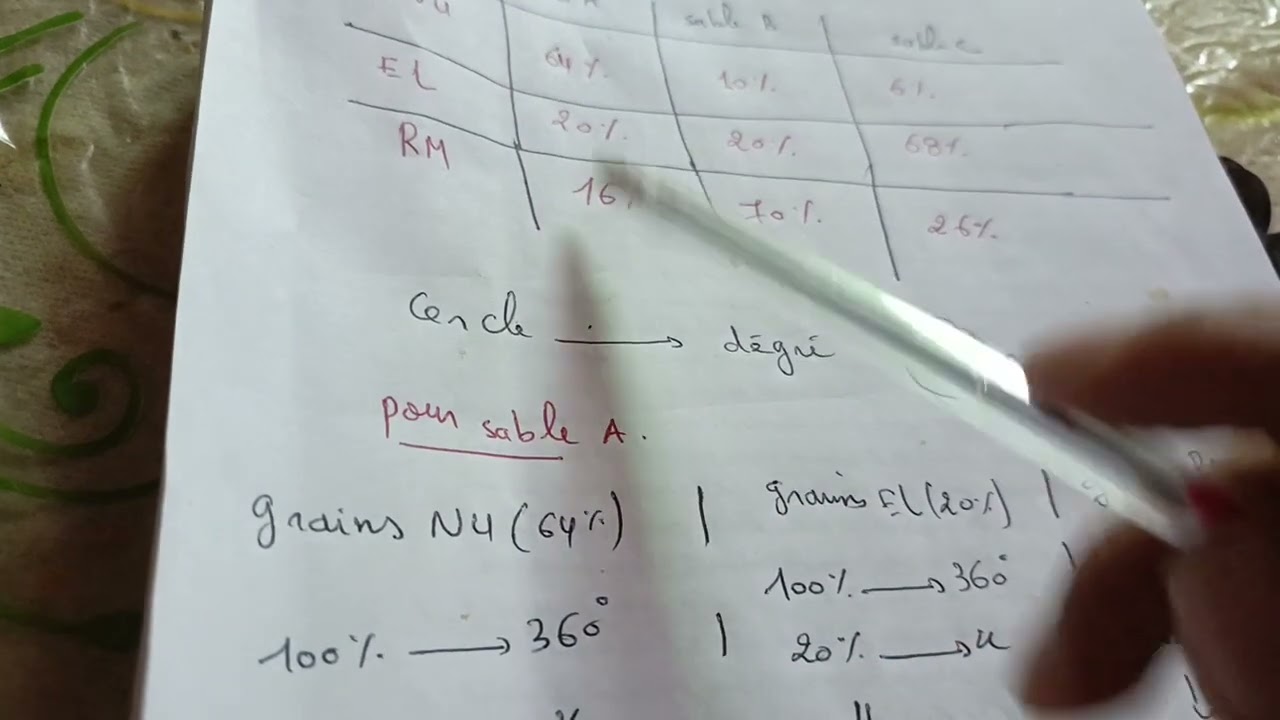 sable B sable C
64% 10% 6%
EL 20% 20% 68%
RM 16% 70% 26%
Cercle → dégré
pour sable A.
grains NU (64%) | grains EL (20%) |
100% → 360° | 100% → 360° |
20% → x